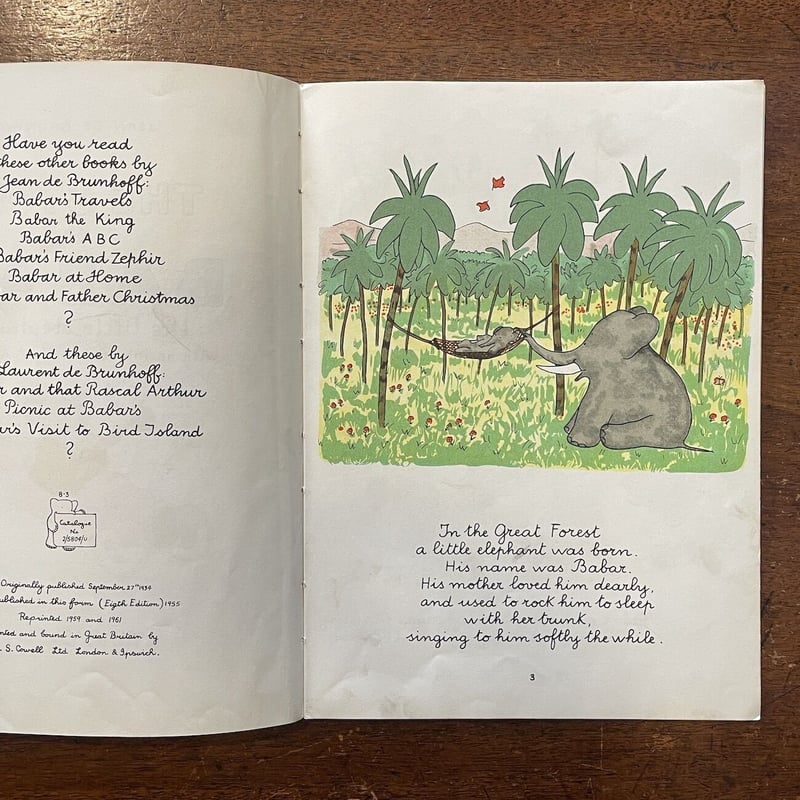 Have you read
these other books by
Jean de Brunhoff:
Babar's Travels
Babar the King
Babar's A B C
Babar's Friend Zephir
Babar at Home
ar and Father Christmas
?
And these by
Laurent de Brunhoff:
r and that Rascal Arthur
Picnic at Babar's
ar's Visit to Bird Island
?
B·3
Catalogue
No
2/5804/U
Originally published September 27th 1934
ublished in this form (Eigth Edition) 1955
Reprinted 1959 and 1961
nted and bound in Great Britain by
S. Cowell Ltd London & Ipswich.
In the Great Forest
a little elephant was born.
His name was Babar.
His mother loved him dearly,
and used to rock him to sleep
with her trunk,
singing to him softly the while.
3